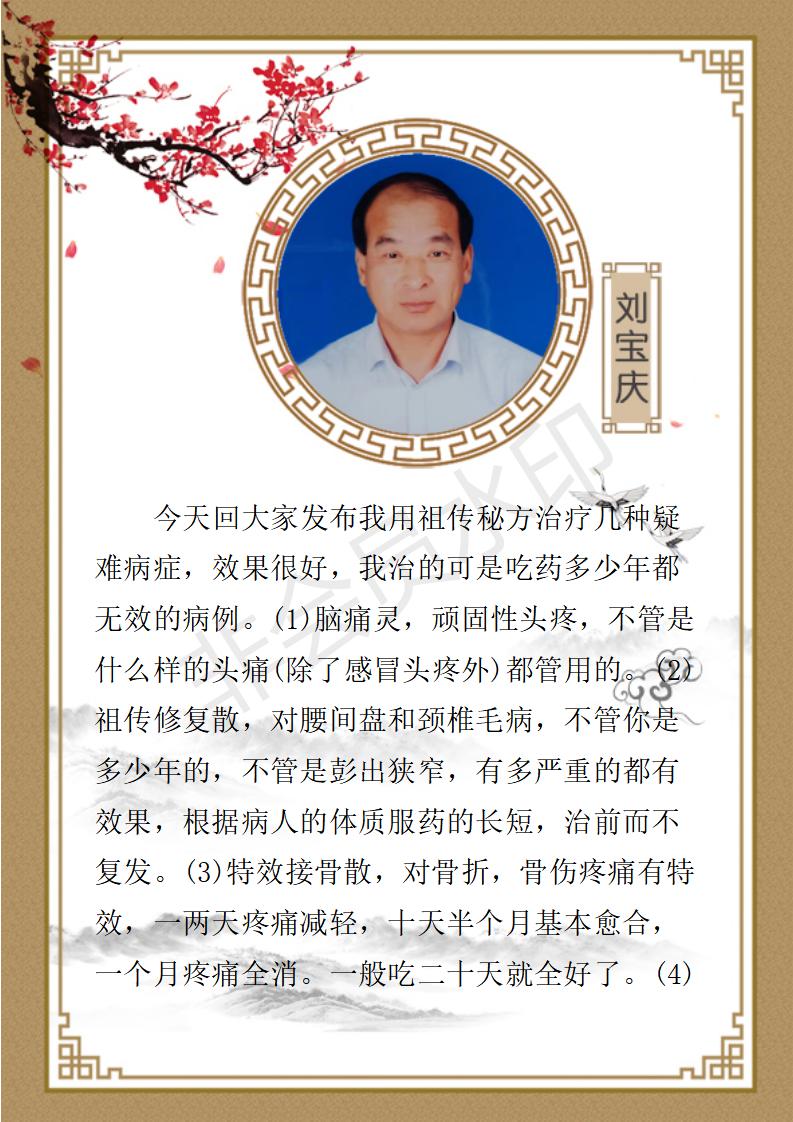 刘宝庆
今天回大家发布我用祖传秘方治疗几种疑
难病症，效果很好，我治的可是吃药多少年都
无效的病例。(1)脑痛灵，顽固性头疼，不管是
什么样的头痛(除了感冒头疼外)都管用的。(2)
祖传修复散，对腰间盘和颈椎毛病，不管你是
多少年的，不管是彭出狭窄，有多严重的都有
效果，根据病人的体质服药的长短，治前而不
复发。(3)特效接骨散，对骨折，骨伤疼痛有特
效，一两天疼痛减轻，十天半个月基本愈合，
一个月疼痛全消。一般吃二十天就全好了。(4)
非会员水印